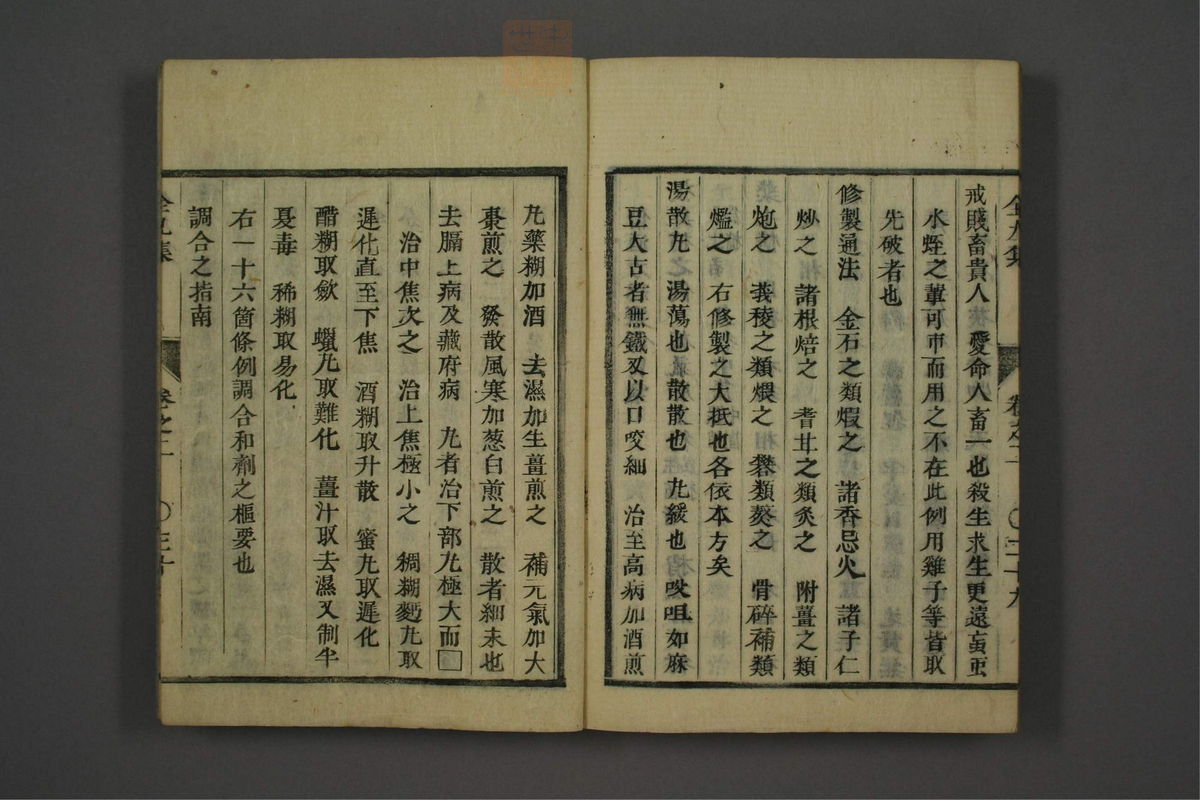 戒賤畜貴人　愛命人畜一也殺生求生更遠蝱䖟
水蛭之輩可市而用之不在此例用雞子等皆取
先破者也
修製通法　金石之類煆之　諸香忌火　諸子仁
炒之　諸根焙之　耆艽之類炙之　附薑之類
炮之　莪稜之類煨之　礬類熬之　骨碎補類
爁之　右修製之大抵也各依本方矣
湯散尢　湯蕩也散散也　尢緩也　㕮咀如麻
豆大古者無鐵刄以口咬細　治至高病加酒煎
尢藥糊加酒　去濕加生薑煎之　補元氣加大
棗煎之　發散風寒加葱白煎之　散者細末也
去膈上病及藏府病　尢者治下部尢極大而□
治中焦次之　治上焦極小之　稠糊麪尢取
遲化直至下焦　酒糊取升散　蜜尢取遲化
醋糊取歛　蠟尢取難化　薑汁取去濕又制半
夏毒　稀糊取易化
右一十六箇條例調合和劑之樞要也
調合之指南